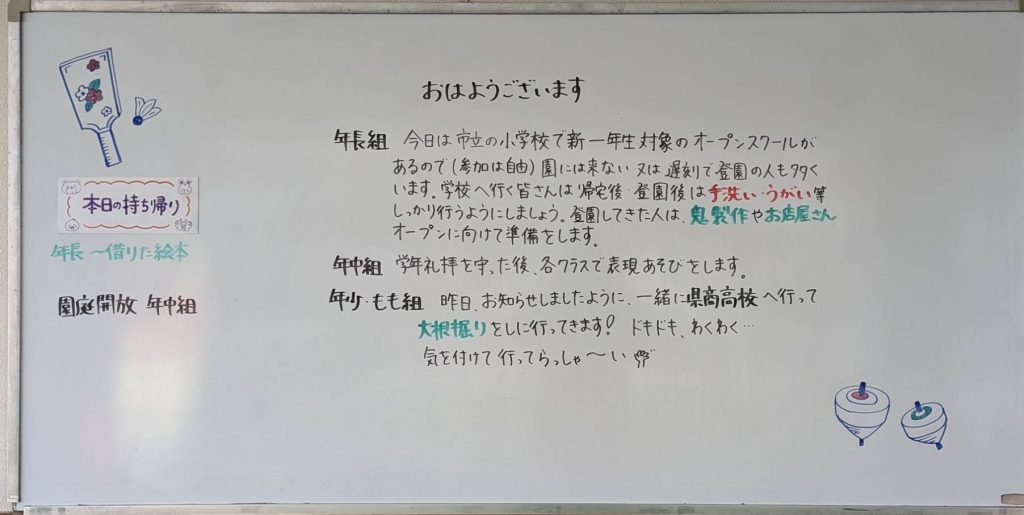 おはようございます
年長組 今日は市立の小学校で新一年生対象のオープンスクールが
あるので(参加は自由)園には来ない又は遅刻で登園の人も多く
います。学校へ行く皆さんは帰宅後・登園後は手洗い・うがい等
しっかり行うようにしましょう。登園してきた人は、鬼製作やお店屋さん
オープンに向けて準備をします。
年中組 学年礼拝を守った後、各クラスで表現あそびをします。
年少・もも組 昨日、お知らせしましたように、一緒に県商高校へ行って
大根掘りをしに行ってきます! ドキドキ、わくわく…
気を付けて行ってらっしゃ〜い
本日の持ち帰り
年長 〜借りた絵本
園庭開放 年中組